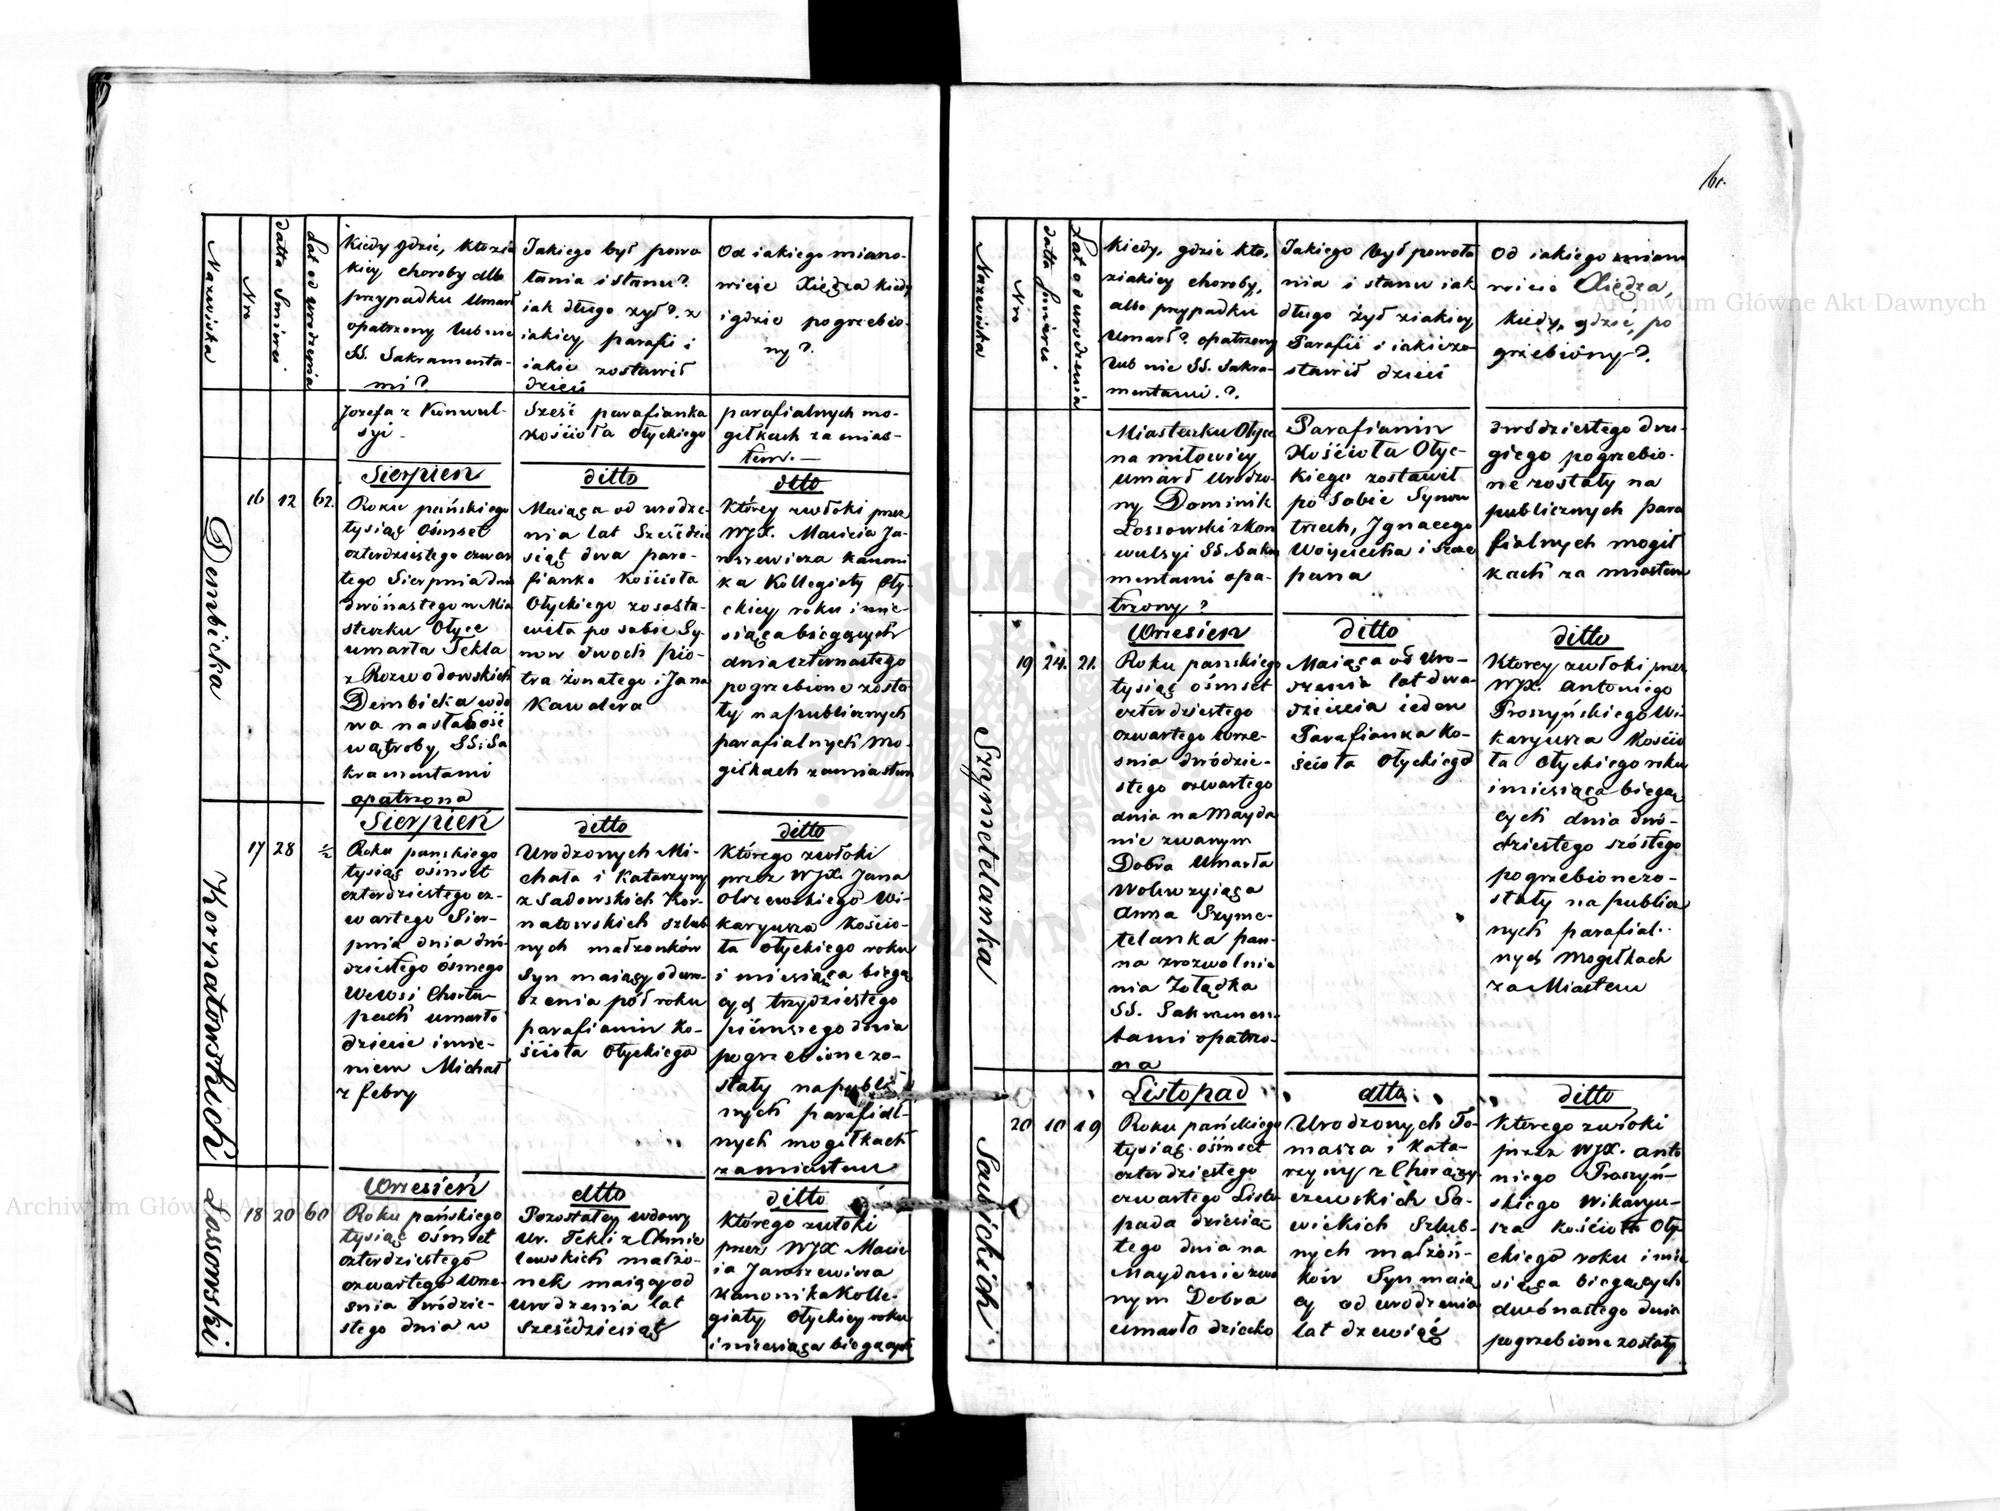 Nazwiska
Nro
datta Smierci
Lat od urodzenia
Kiedy gdzie, ktozia
kiey choroby albo
przypadku Umarł
opatrzony lub nie
SS. Sakramenta-
mi?
Jakiego był powo
łania i stanu?
jak długo żył? z
iakiey parafi i
iakie zostawił
dzieci
Od iakiego miano-
wicie Xiędza kiedy
i gdzie pogrzebio-
ny?
Jozefa z Konwul-
syi.
Sześć parafianka
Kościoła Ołyckiego
parafialnych mo-
giłkach za mias-
tem. —
Dembicka
16
12
62.
Sierpień
Roku pańskiego
tysiąc ośmset
czterdziestego czwar
tego Sierpnia dnia
dwónastego w Mia
steczku Ołyce
umarła Tekla
z Rozwodowskich
Dembicka wdo
wa na słabość
wątroby, SS: Sa
kramentami
opatrzona
ditto
Maiąca od urodze-
nia lat Sześćdzie
siąt dwa para-
fianka Kościoła
Ołyckiego zososta-
wiła po sobie Sy-
now dwoch pio-
tra żonatego i Jana
Kawalera
ditto
Którey zwłoki przez
WJX. Macieia Ja-
roszewicza Kanoni
ka Kollegiaty Oły-
ckiey roku i mie-
siąca bieących
dnia czternastego
pogrzebione zosta
ły na publicznych
parafialnych mo-
giłkach za miastem
Kornatowskich
17
28
½
Sierpień
Roku pańskiego
tysiąc ośmset
czterdziestego cz-
wartego Sier-
pnia dnia dwó-
dziestego ósmego
We wsi Chorłu-
pach umarło
dziecie imie-
niem Michał
z febry
ditto
Urodzonych Mi-
chała i Katarzyny
z Sadowskich Kor-
natowskich szlub
nych małżonków
Syn maiący od uro-
dzenia pół roku
parafianin Ko-
ścioła Ołyckiego
ditto
Którego zwłoki
przez WJX. Jana
Olszewskiego Wi-
karyusza Kościo-
ła Ołyckiego roku
i miesiąca bieżą
cych trzydziestego
pierwszego dnia
pogrzebione zo-
stały na publi
nych parafial-
nych mogiłkach
za miastem
Lossowski
18
20
60
Wrzesień
Roku pańskiego
tysiąc ośmset
czterdziestego
czwartego Wrze-
śnia dwódzie-
stego dnia w
ditto
Pozostałey wdowy
Ur. Tekli z Chmie
lewskich małżo-
nek maiący od
urodzenia lat
sześćdziesiąt
ditto
Którego zwłoki
przez WJX Macie
ia Jaroszewicza
Kanonika Kolle-
giaty Ołyckiey roku
i miesiąca bieżących
16.
Nazwiska
Nro
datta Smierci
Lat od urodzenia
Kiedy, gdzie kto,
ziakiey choroby,
albo przypadku
Umarł? opatrzony
lub nie SS. Sakra-
mentami.?
Jakiego był powoła
nia i stanu iak
długo żył ziakiey
Parafii i iakie zo-
stawił dzieci
Od iakiego miano
wicie Xiędza,
kiedy, gdzie, po
grzebiony?
Miasteczku Ołyce
na miłowicy
umarł Urodzo-
ny Dominik
Lossowski z kon
wulsyi SS. Sakra
mentami opa-
trzony?
Parafianin
Kościoła Ołyc-
kiego zostawił
po sobie Synow
trzech, Ignacego
Woyciecha i Szcze
pana
dwódziestego dru-
giego pogrzebio-
ne zostały na
publicznych para
fialnych mogił
kach za miastem
Szymetelanka
19
24.
21.
Wrzesień
Roku pańskiego
tysiąc ośmset
czterdziestego
czwartego Wrze-
śnia dwódzie-
stego czwartego
dnia na Mayda
nie zwanym
Dobra Umarła
Wolwzyiąca
Anna Szyme-
telanka pan-
na z rozwolnie
nia Żołądka
SS. Sakramen-
tami opatrzo-
na
ditto
Maiąca od Uro-
dzenia lat dwa-
dzieścia ieden
Parafianka Ko-
ścioła Ołyckiego
ditto
Ktorey zwłoki przez
WJX. Antoniego
Proszyńskiego Wi-
karyusza Kościo
ła Ołyckiego roku
i miesiąca bieżą
cych dnia dwó-
dziestego szóstego
pogrzebione zo-
stały na publicz
nych parafial-
nych Mogiłkach
za Miastem
Sawickich
20
10
19
Listopad
Roku pańskiego
tysiąc ośmset
czterdziestego
czwartego Listo
pada dziesią
tego dnia na
Maydanie zwa
nym Dobra
umarło dziecko
ditto
Urodzonych To-
masza i Kata-
rzyny z Chorąży
czewskich Sa-
wickich Szlub-
nych małżon-
ków Syn maią
cy od urodzenia
lat dziewięć
ditto
Którego zwłoki
przez WJX. Anto
niego Proszyń-
skiego Wikaryu-
sza Kościoła Oły
ckiego roku i mie
siąca bieżących
dwónastego dnia
pogrzebione zostały
Archiwum Główne Akt Dawnych
Archiwum Główne Akt Dawnych